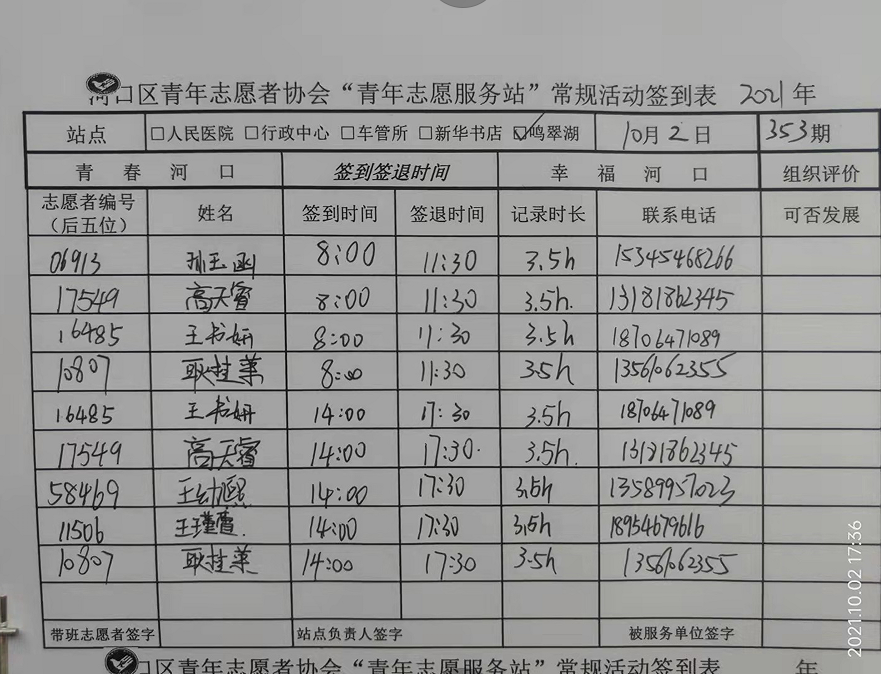 河口区青年志愿者协会“青年志愿服务站”常规活动签到表 2021年
站点 □人民医院 □行政中心 □车管所 □新华书店 ☑鸣翠湖 10月2日 353期
青春河口 签到签退时间 幸福河口 组织评价
志愿者编号（后五位） 姓名 签到时间 签退时间 记录时长 联系电话 可否发展
06913 孙玉函 8:00 11:30 3.5h 15345468266
17549 高天睿 8:00 11:30 3.5h. 13181862345
16485 王书妍 8:00 11:30 3.5h 18706471089
10807 耿桂英 8:00 11:30 3.5h 13561062355
16485 王书妍 14:00 17:30 3.5h 18706471089
17549 高天睿 14:00 17:30. 3.5h. 13181862345
58469 王幼熙 14:00 17:30 3.5h 13589957023
11506 王瑾萱. 14:00 17:30 3.5h 18954679616
10807 耿桂英 14:00 17:30 3.5h 13561062355
带班志愿者签字 站点负责人签字 被服务单位签字
口区青年志愿者协会“青年志愿服务站”常规活动签到表 年
2021.10.02 17:36